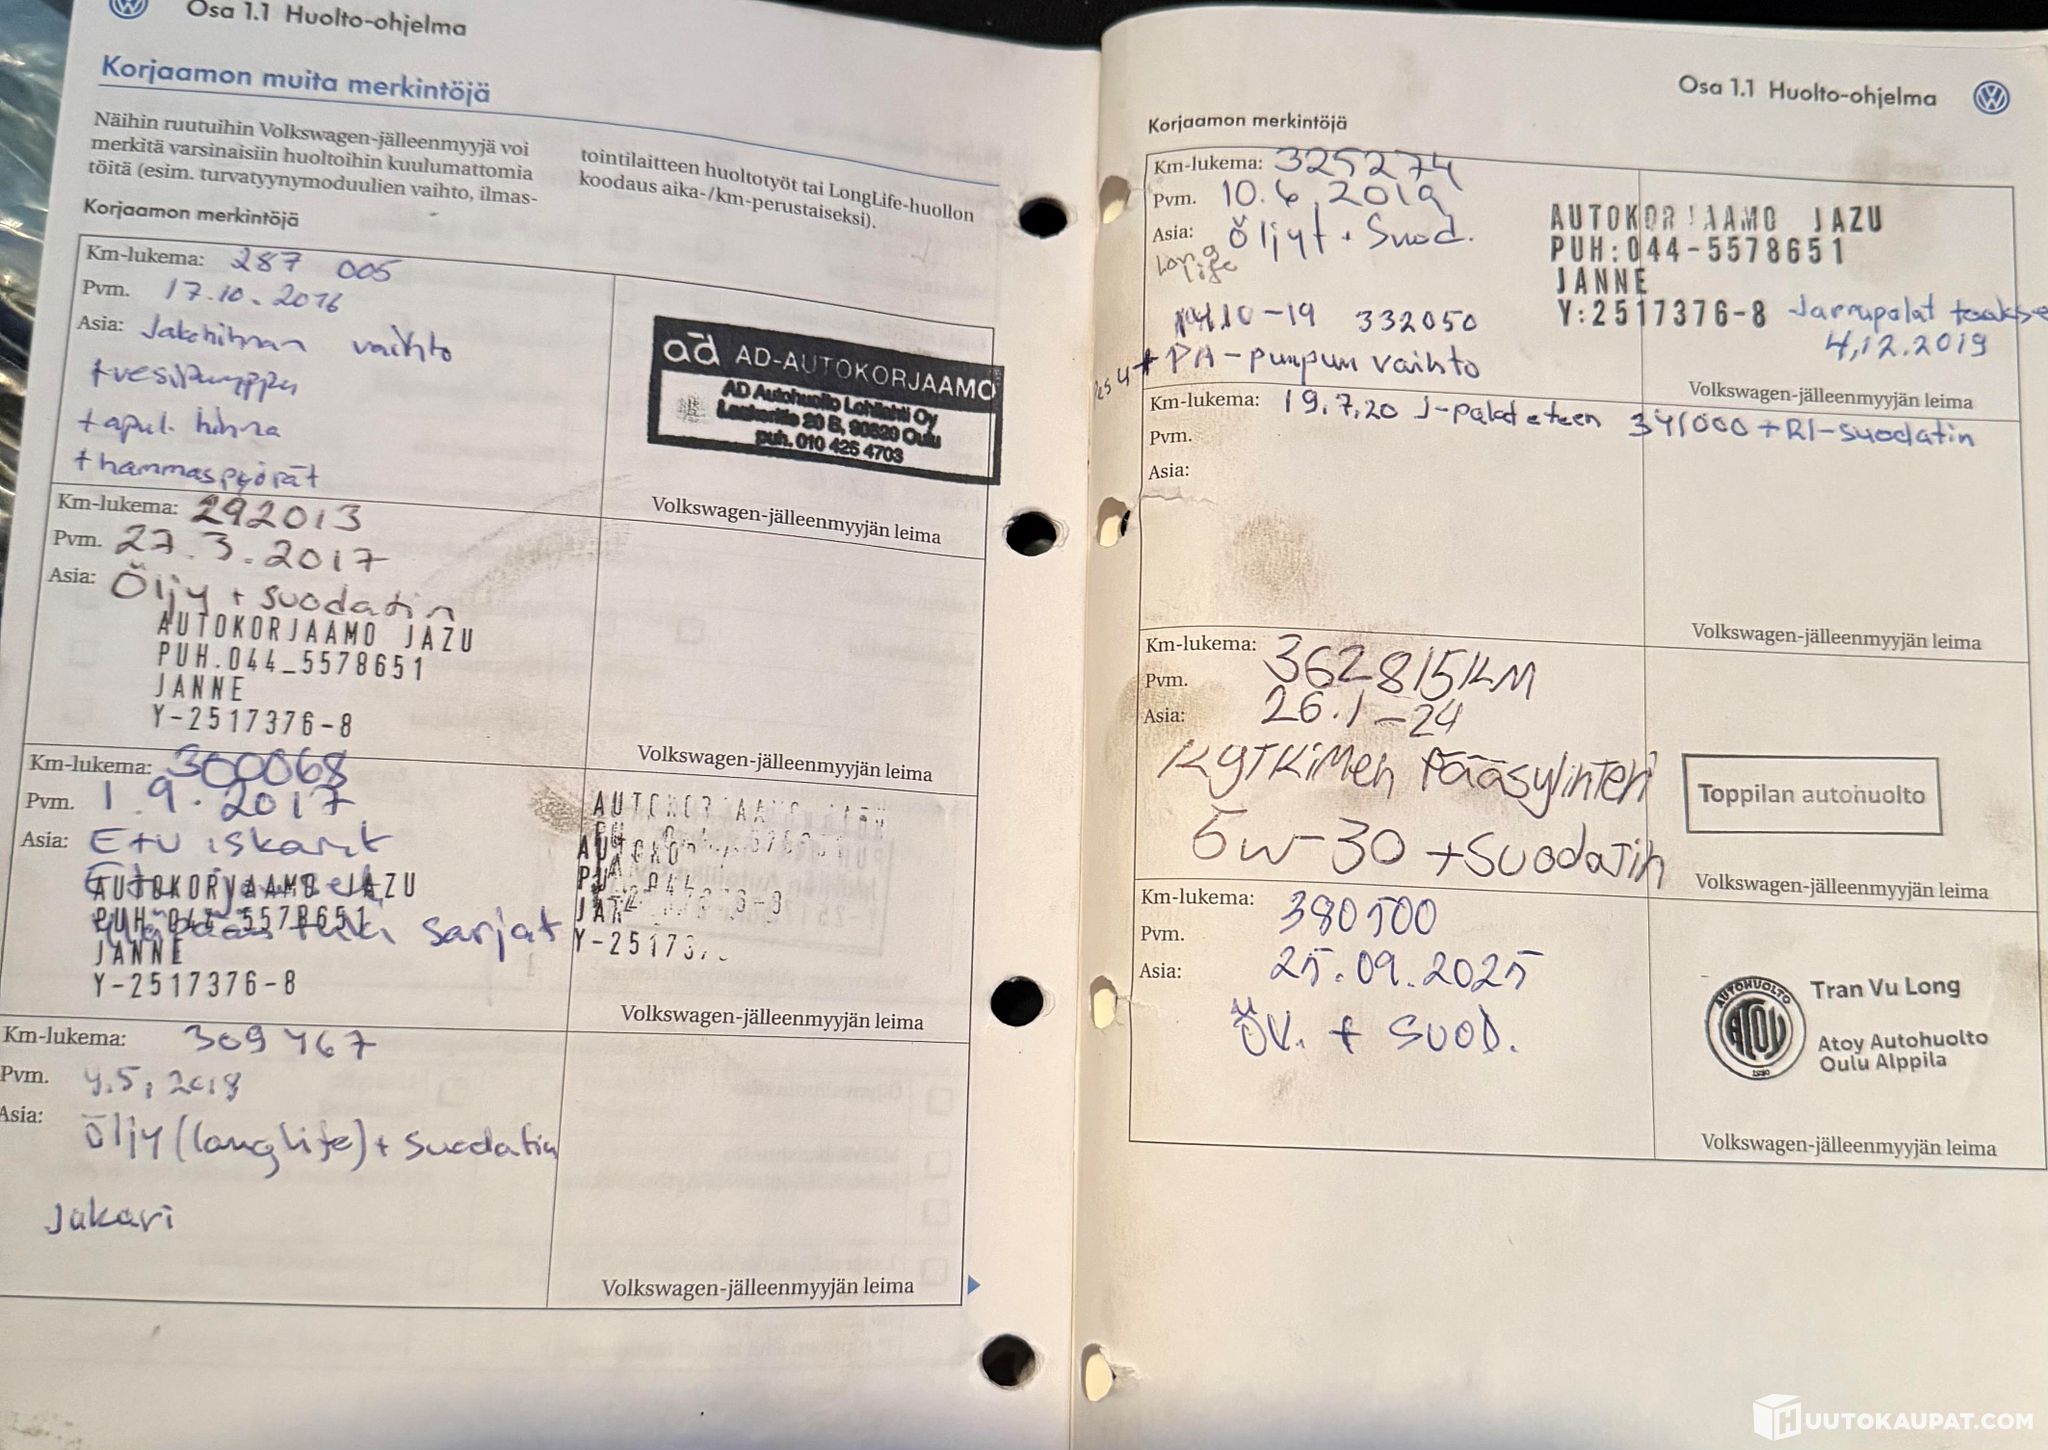 Osa 1.1 Huolto-ohjelma
Korjaamon muita merkintöjä
Näihin ruutuihin Volkswagen-jälleenmyyjä voi
merkitä varsinaisiin huoltoihin kuulumattomia
töitä (esim. turvatyynymoduulien vaihto, ilmas-
tointilaitteen huoltotyöt tai LongLife-huollon
koodaus aika-/km-perustaiseksi).
Korjaamon merkintöjä
Km-lukema: 287 005
Pvm. 17.10.2016
Asia: Jakohihnan vaihto
+vesipumppu
+apul. hihna
+hammaspyörät
ad AD-AUTOKORJAAMO
AD Autohuolto Lohilahti Oy
20 B, 90620 Oulu
puh. 010 425 4703
Volkswagen-jälleenmyyjän leima
Km-lukema: 292013
Pvm. 27.3.2017
Asia: Öljy + suodatin
AUTOKORJAAMO JAZU
PUH.044_5578651
JANNE
Y-2517376-8
Volkswagen-jälleenmyyjän leima
Km-lukema: 300068
Pvm. 1.9.2017
Asia: Etu iskarit
AUTOKORJAAMO JAZU
PUH.044-5578651
sarjat
JANNE
Y-2517376-8
Volkswagen-jälleenmyyjän leima
Km-lukema: 309467
Pvm. 4.5.2018
Asia: Öljy (longlife) + suodatin
Jakari
Volkswagen-jälleenmyyjän leima
Osa 1.1 Huolto-ohjelma
Korjaamon merkintöjä
Km-lukema: 325274
Pvm. 10.6.2019
Asia: Öljyt + Suod.
Long life
AUTOKORJAAMO JAZU
PUH:044-5578651
JANNE
Y:2517376-8 Jarrupalat taakse
4,12.2019
10-19 332050
+ PA-pumpun vaihto
Volkswagen-jälleenmyyjän leima
Km-lukema: 19.7.20 J-palat eteen 341000 + RI-suodatin
Pvm.
Asia:
Volkswagen-jälleenmyyjän leima
Km-lukema: 362815KM
Pvm. 26.1-24
Asia:
KYTKIMEN Pääsylinteri
5W-30 + SUODATIN
Toppilan autohuolto
Volkswagen-jälleenmyyjän leima
Km-lukema: 380500
Pvm. 25.09.2025
Asia: ÖV. + SUOD.
AUTOHUOLTO
ATOY
Tran Vu Long
Atoy Autohuolto
Oulu Alppila
Volkswagen-jälleenmyyjän leima
HUUTOKAUPAT.COM